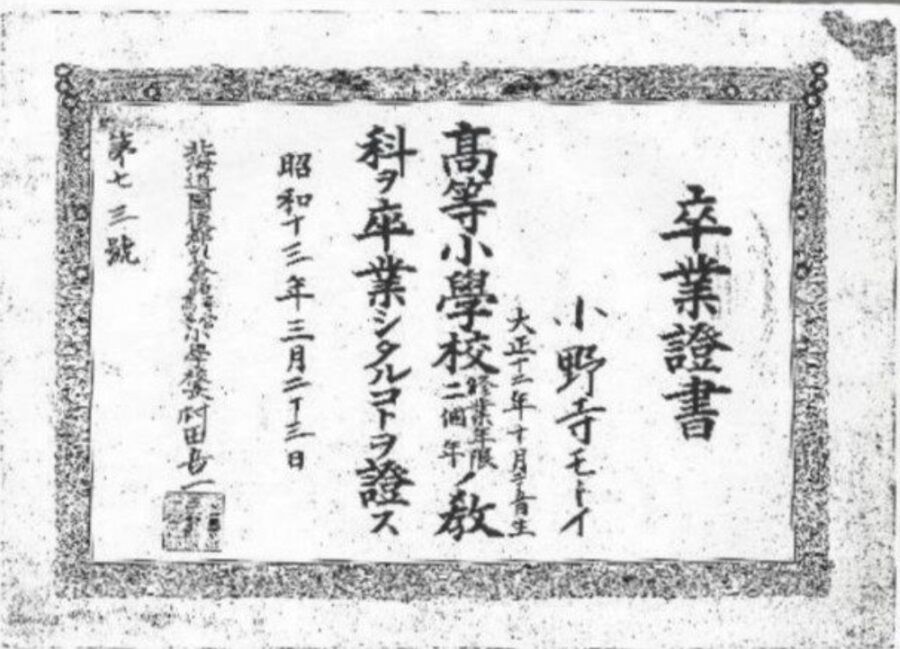 卒業證書
小野寺モトイ
大正十二年十月二十一日生
高等小學校修業年限二個年ノ教
科ヲ卒業シタルコトヲ證ス
昭和十三年三月二十三日
北海道 小學校長 村田 一
第七三號